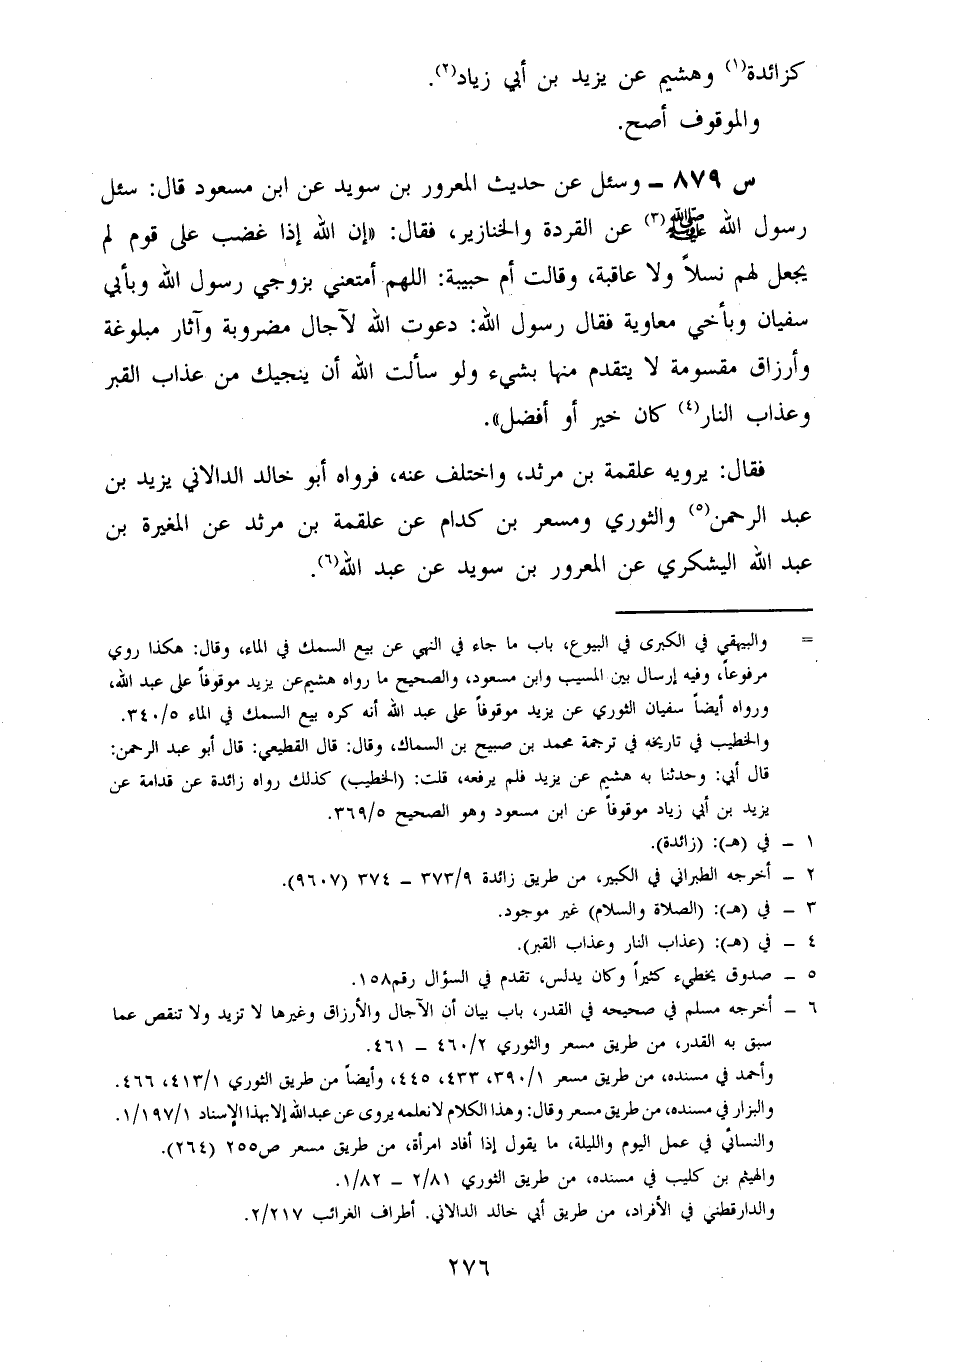 كزائدة(١) وهشيم عن يزيد بن أبي زياد(٢).
والموقوف أصح.
س ٨٧٩ ـ وسئل عن حديث المعرور بن سويد عن ابن مسعود قال: سئل
رسول الله ﷺ(٣) عن القردة والخنازير، فقال: «إن الله إذا غضب على قوم لم
يجعل لهم نسلاً ولا عاقبة، وقالت أم حبيبة: اللهم أمتعني بزوجي رسول الله وبأبي
سفيان وبأخي معاوية فقال رسول الله: دعوت الله لآجال مضروبة وآثار مبلوغة
وأرزاق مقسومة لا يتقدم منها بشيء ولو سألت الله أن ينجيك من عذاب القبر
وعذاب النار(٤) كان خير أو أفضل».
فقال: يرويه علقمة بن مرثد، واختلف عنه، فرواه أبو خالد الدالاني يزيد بن
عبد الرحمن(٥) والثوري ومسعر بن كدام عن علقمة بن مرثد عن المغيرة بن
عبد الله اليشكري عن المعرور بن سويد عن عبد الله(٦).
= والبيهقي في الكبرى في البيوع، باب ما جاء في النهي عن بيع السمك في الماء، وقال: هكذا روي
مرفوعاً، وفيه إرسال بين المسيب وابن مسعود، والصحيح ما رواه هشيم عن يزيد موقوفاً على عبد الله،
ورواه أيضاً سفيان الثوري عن يزيد موقوفاً على عبد الله أنه كره بيع السمك في الماء ٣٤٠/٥.
والخطيب في تاريخه في ترجمة محمد بن صبيح بن السماك، وقال: قال القطيعي: قال أبو عبد الرحمن:
قال أبي: وحدثنا به هشيم عن يزيد فلم يرفعه، قلت: (الخطيب) كذلك رواه زائدة عن قدامة عن
يزيد بن أبي زياد موقوفاً عن ابن مسعود وهو الصحيح ٣٦٩/٥.
١ ـ في (هـ): (زائدة).
٢ ـ أخرجه الطبراني في الكبير، من طريق زائدة ٣٧٣/٩ ـ ٣٧٤ (٩٦٠٧).
٣ ـ في (هـ): (الصلاة والسلام) غير موجود.
٤ ـ في (هـ): (عذاب النار وعذاب القبر).
٥ ـ صدوق يخطيء كثيراً وكان يدلس، تقدم في السؤال رقم١٥٨.
٦ ـ أخرجه مسلم في صحيحه في القدر، باب بيان أن الآجال والأرزاق وغيرها لا تزيد ولا تنقص عما
سبق به القدر، من طريق مسعر والثوري ٤٦٠/٢ ـ ٤٦١.
وأحمد في مسنده، من طريق مسعر ٣٩٠/١، ٤٣٣، ٤٤٥، وأيضاً من طريق الثوري ٤١٣/١، ٤٦٦.
والبزار في مسنده، من طريق مسعر وقال: وهذا الكلام لانعلمه يروى عن عبدالله إلا بهذا الإسناد ١/١٩٧/١.
والنسائي في عمل اليوم والليلة، ما يقول إذا أفاد امرأة، من طريق مسعر ص٢٥٥ (٢٦٤).
والهيثم بن كليب في مسنده، من طريق الثوري ٢/٨١ ـ ١/٨٢.
والدارقطني في الأفراد، من طريق أبي خالد الدالاني. أطراف الغرائب ٢/٢١٧.
٢٧٦